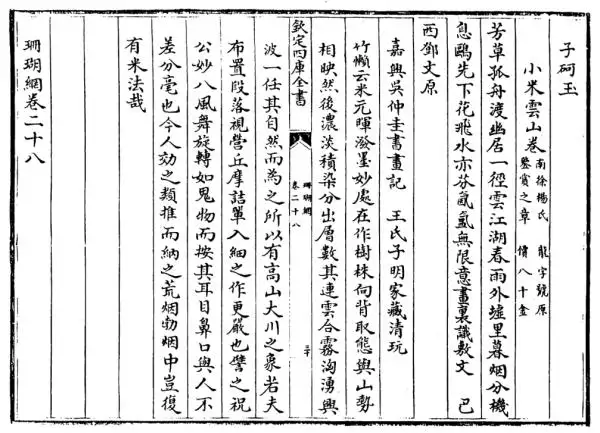 子砢玉
小米雲山卷 南徐楊氏鑒賞之章 龍字號原價八十金
芳草孤舟渡幽居一徑雲江湖春雨外墟里暮烟分機
息鷗先下花飛水亦芬氤氳無限意畫裏識敷文　巴
西鄧文原
嘉興吳仲圭書畫記　王氏子明家藏清玩
竹懶云米元暉潑墨妙處在作樹株向背取態與山勢
相映然後濃淡積染分出層數其連雲合霧洶湧興
欽定四庫全書
珊瑚網
卷二十八
三十
波一任其自然而為之所以有高山大川之象若夫
布置段落視營丘摩詰單入細之作更嚴也譬之祝
公妙八風舞旋轉如鬼物而按其耳目鼻口與人不
差分毫也今人効之類推而納之荒烟勃烟中豈復
有米法哉
珊瑚網卷二十八